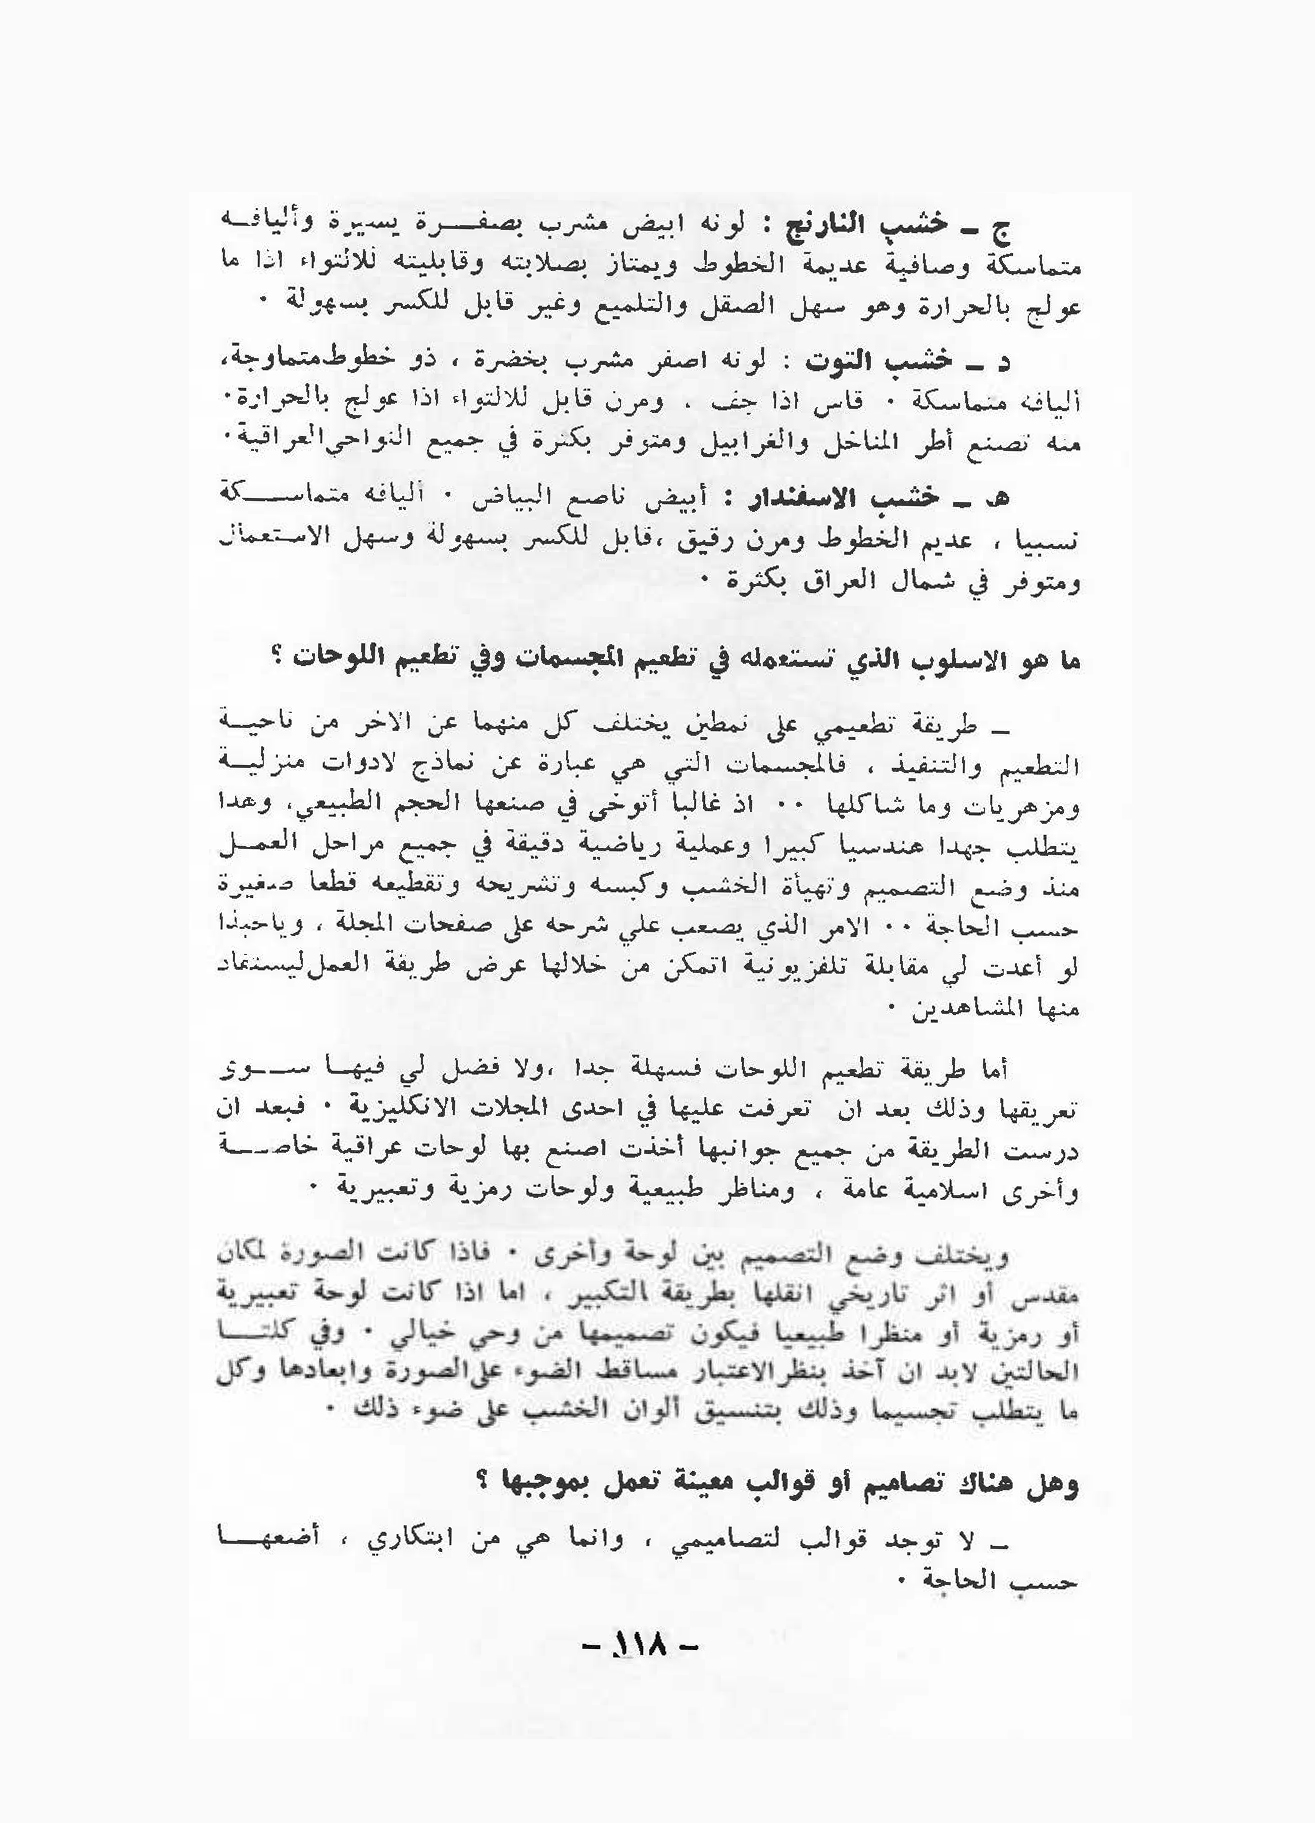 ج – خشب النارنج : لونه ابيض مشرب بصفرة يسيرة وأليافه
متماسكة وصافية عديمة الخطوط ويمتاز بصلابته وقابليته للالتواء اذا ما
عولج بالحرارة وهو سهل الصقل والتلميع وغير قابل للكسر بسهولة ٠
د – خشب التوت : لونه اصفر مشرب بخضرة ، ذو خطوط متماوجة،
أليافه متماسكة ٠ قاس اذا جف ، ومرن قابل للالتواء اذا عولج بالحرارة٠
منه تصنع أطر المناخل والغرابيل ومتوفر بكثرة في جميع النواحي العراقية٠
هـ – خشب الاسفندار : أبيض ناصع البياض ٠ أليافه متماسكة
نسبيا ، عديم الخطوط ومرن رقيق ،قابل للكسر بسهولة وسهل الاستعمال
ومتوفر في شمال العراق بكثرة ٠
ما هو الاسلوب الذي تستعمله في تطعيم المجسمات وفي تطعيم اللوحات ؟
– طريقة تطعيمي على نمطين يختلف كل منهما عن الاخر من ناحية
التطعيم والتنفيذ ، فالمجسمات التي هي عبارة عن نماذج لادوات منزلية
ومزهريات وما شاكلها ٠٠ اذ غالبا أتوخى في صنعها الحجم الطبيعي، وهذا
يتطلب جهدا هندسيا كبيرا وعملية رياضية دقيقة في جميع مراحل العمل
منذ وضع التصميم وتهيأة الخشب وكبسه وتشريحه وتقطيعه قطعا صغيرة
حسب الحاجة ٠٠ الامر الذي يصعب علي شرحه على صفحات المجلة ، وياحبذا
لو أعدت لي مقابلة تلفزيونية اتمكن من خلالها عرض طريقة العمل ليستفاد
منها المشاهدين ٠
أما طريقة تطعيم اللوحات فسهلة جدا ،ولا فضل لي فيها سوى
تعريقها وذلك بعد ان تعرفت عليها في احدى المجلات الانكليزية ٠ فبعد ان
درست الطريقة من جميع جوانبها أخذت اصنع بها لوحات عراقية خاصة
وأخرى اسلامية عامة ، ومناظر طبيعية ولوحات رمزية وتعبيرية ٠
ويختلف وضع التصميم بين لوحة وأخرى ٠ فاذا كانت الصورة لمكان
مقدس أو اثر تاريخي انقلها بطريقة التكبير ، اما اذا كانت لوحة تعبيرية
أو رمزية أو منظرا طبيعيا فيكون تصميمها من وحي خيالي ٠ وفي كلتا
الحالتين لابد ان آخذ بنظر الاعتبار مساقط الضوء على الصورة وابعادها وكل
ما يتطلب تجسيما وذلك بتنسيق ألوان الخشب على ضوء ذلك ٠
وهل هناك تصاميم أو قوالب معينة تعمل بموجبها ؟
– لا توجد قوالب لتصاميمي ، وانما هي من ابتكاري ، أضعها
حسب الحاجة ٠
– ١١٨ –